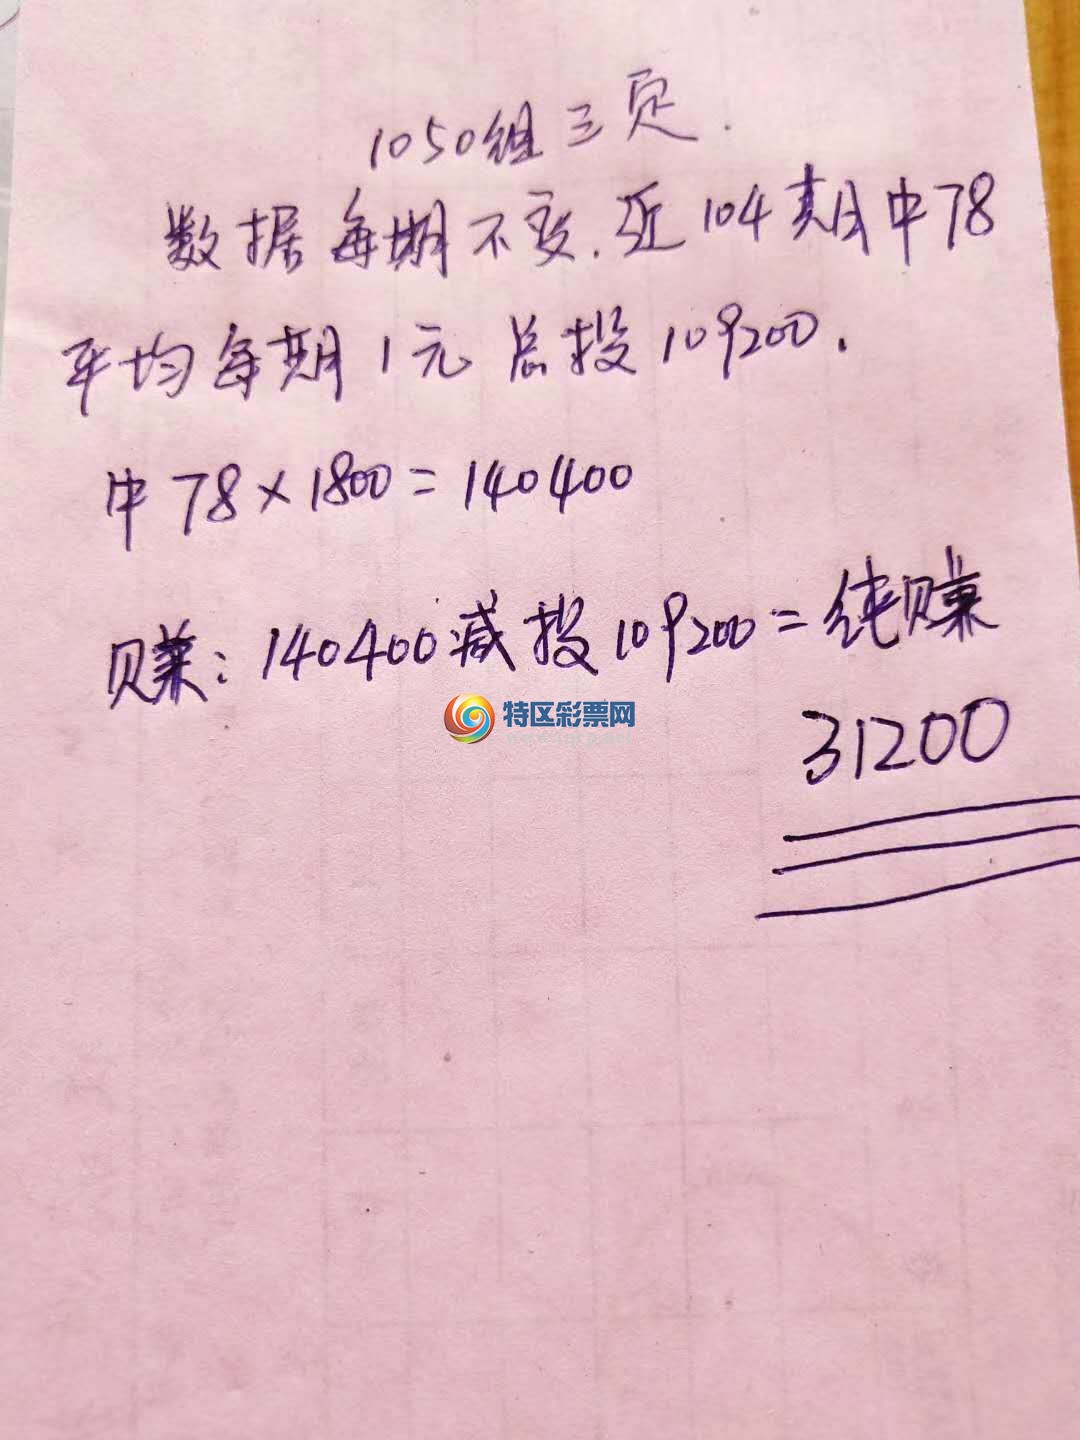 1050组三页.
数据每期不变.近104期中78
平均每期1元总投109200.
中78×1800=140400
赚:140400减投109200=纯赚
特区彩票网
31200